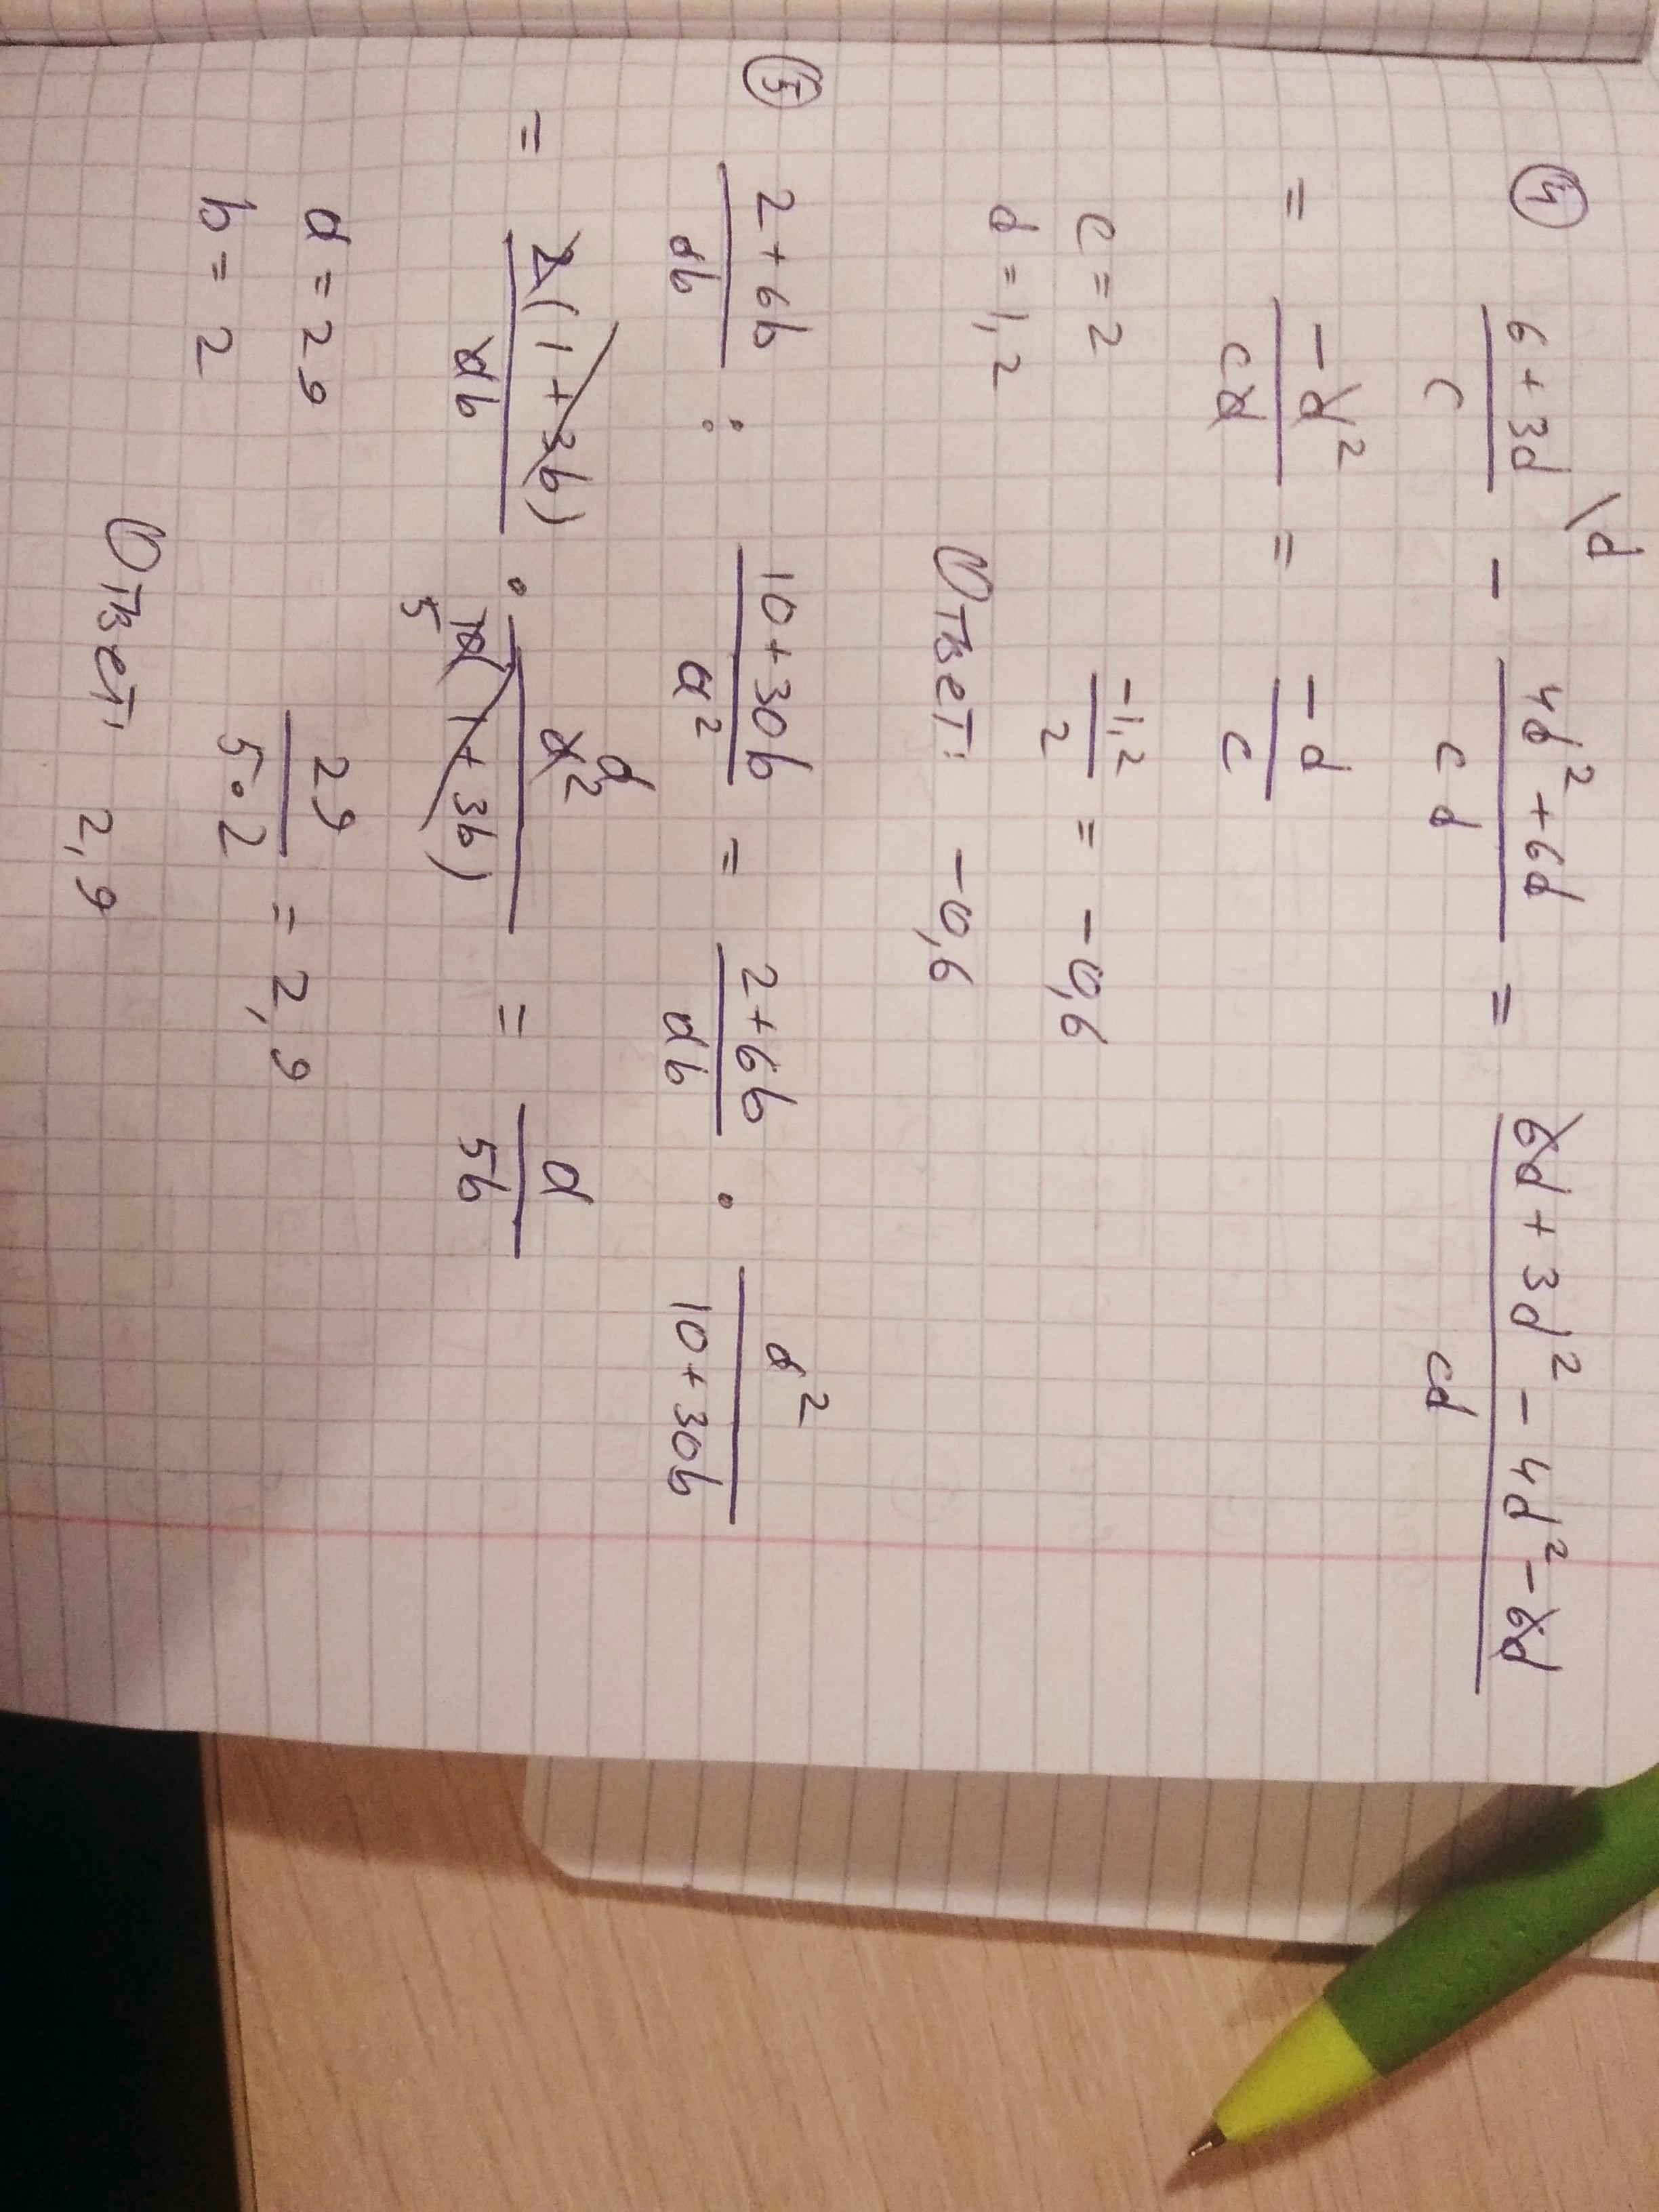 ④ (6+3d)/c \d − (4d²+6d)/(cd) = (6d+3d²−4d²−6d)/(cd)
= −d²/(cd) = −d/c
c = 2
d = 1,2
−1,2/2 = −0,6
Ответ: −0,6
⑤ (2+6b)/(ab) : (10+30b)/a² = (2+6b)/(ab) · a²/(10+30b)
= 2(1+3b)/(ab) · a² a/(10(1+3b)) 5 = a/(5b)
a = 29
b = 2
29/(5·2) = 2,9
Ответ: 2,9